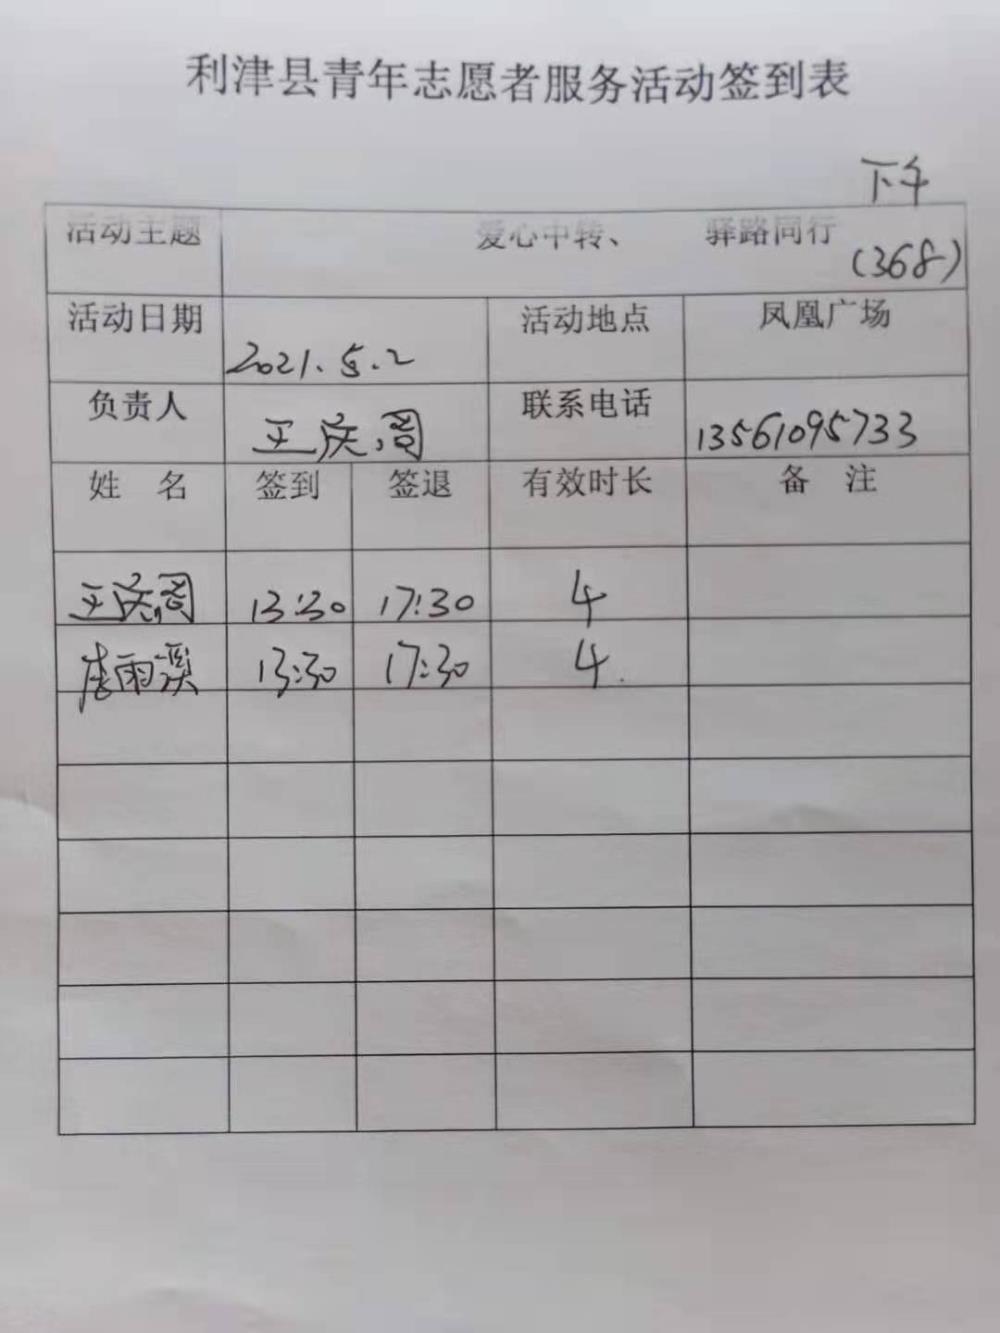 利津县青年志愿者服务活动签到表
下午
活动主题 爱心中转、 驿路同行
(368)
活动日期 2021.5.2 活动地点 凤凰广场
负责人 王庆周 联系电话 13561095733
姓 名 签到 签退 有效时长 备 注
王庆周 13:30 17:30 4
李雨溪 13:30 17:30 4.